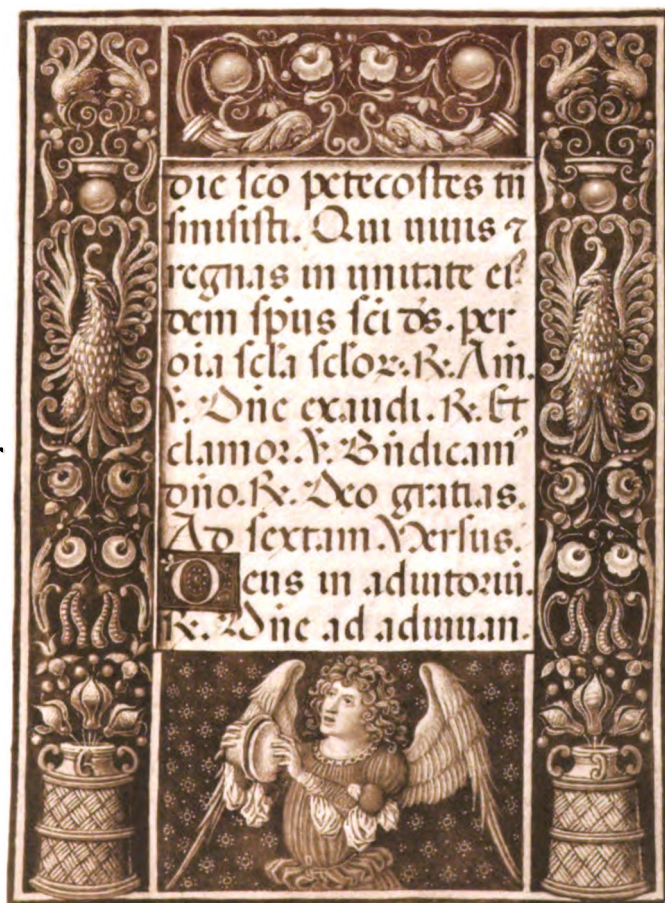 die sco pētecostes tn̄
smisisti. Qui uiuis ⁊
regnas in unitate eiꝰ
dem spūs sc̄i ds̄. per
oīa sc̄la sc̄loꝝ. ℟. Am̄.
℣. Dn̄e exaudi. ℟. Et
clamor. ℣. Bn̄dicamꝰ
dn̄o. ℟. Deo gratias.
Ad sextam. Versus.
Deus in adiutoriū.
℟. Dn̄e ad adiuuan.